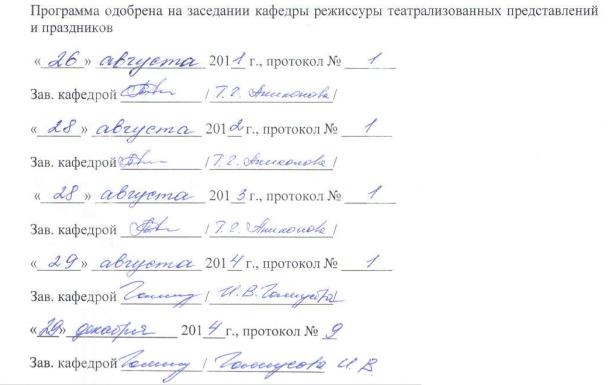 Программа одобрена на заседании кафедры режиссуры театрализованных представлений
и праздников
« 26 » августа 2011 г., протокол № 1
Зав. кафедрой / Т.Г. /
« 28 » августа 2012 г., протокол № 1
Зав. кафедрой / Т.Г. /
« 28 » августа 2013 г., протокол № 1
Зав. кафедрой / Т.Г. /
« 29 » августа 2014 г., протокол № 1
Зав. кафедрой / И.В. /
«29» декабря 2014 г., протокол № 9
Зав. кафедрой / И.В.